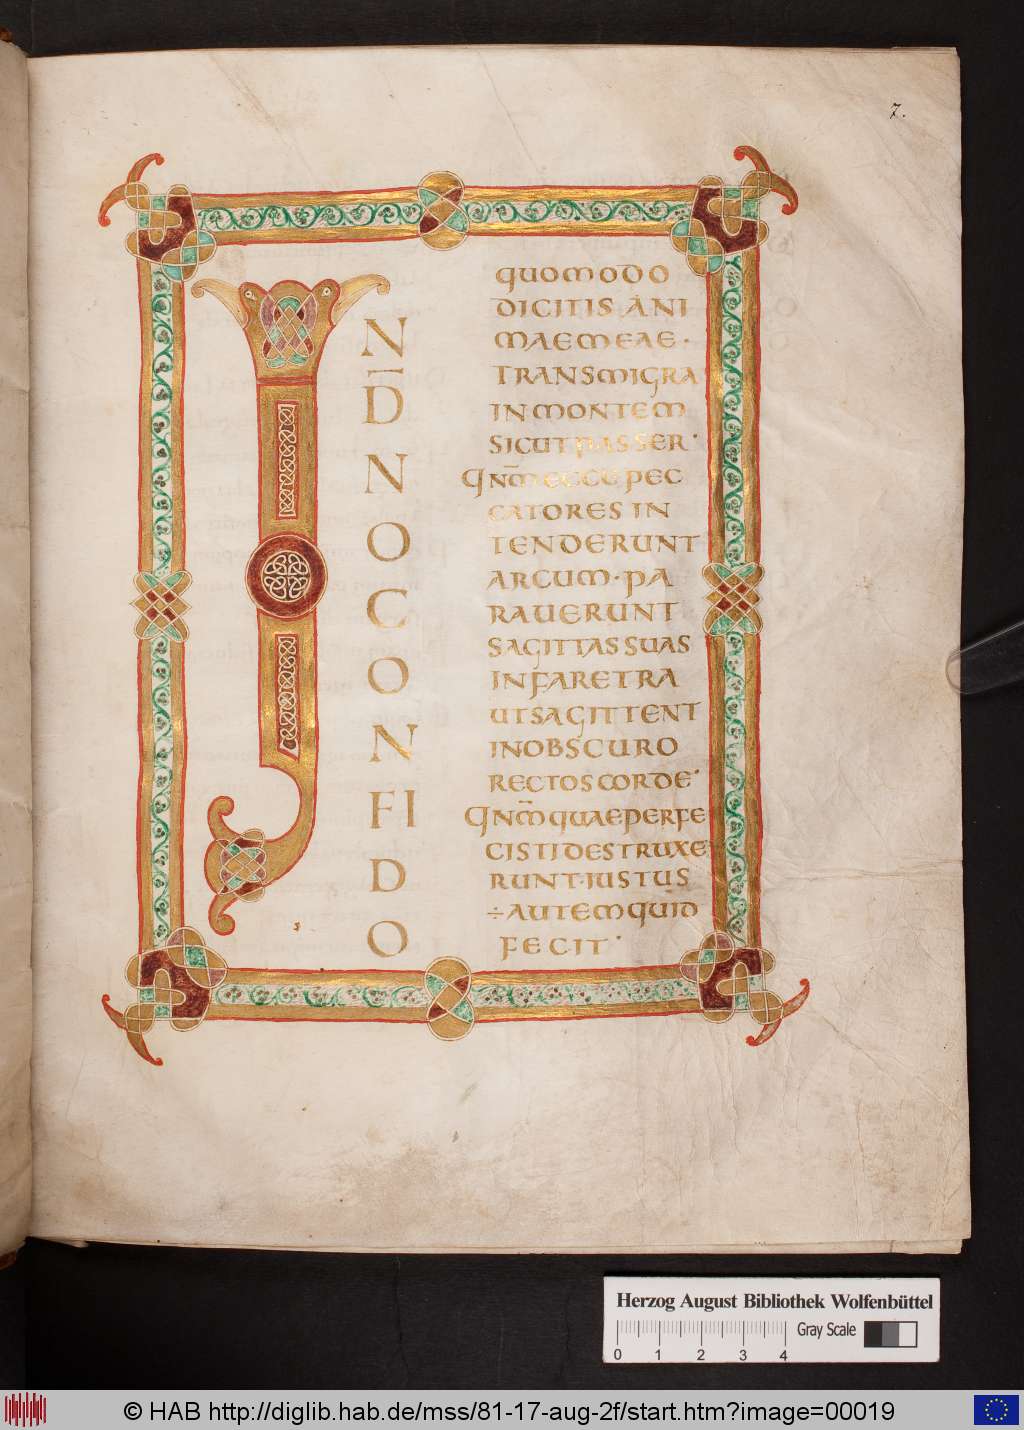 7.
I
N
D̄
N
O
C
O
N
FI
D
O
QUOMODO
DICITIS ANI
MAE MEAE ·
TRANSMIGRA
IN MONTEM
SICUT PASSER ·
QNM̄ ECCE PEC
CATORES IN
TENDERUNT
ARCUM · PA
RAUERUNT
SAGITTAS SUAS
IN FARETRA
UT SAGITTENT
IN OBSCURO
RECTOS CORDE ·
QNM̄ QUAE PERFE
CISTI DESTRUXE
RUNT · IUSTUS
÷ AUTEM QUID
FECIT ·
Herzog August Bibliothek Wolfenbüttel
Gray Scale
0 1 2 3 4
© HAB http://diglib.hab.de/mss/81-17-aug-2f/start.htm?image=00019